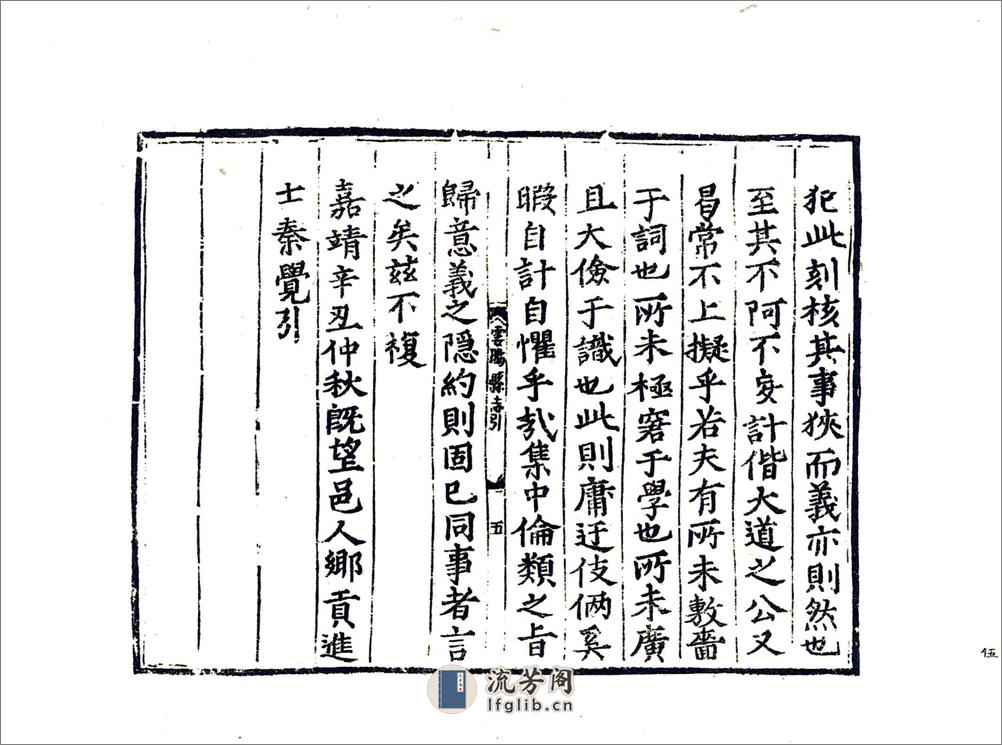 犯此刻核其事狹而義亦則然也
至其不阿不妄計偕大道之公又
曷常不上擬乎若夫有所未敷嗇
于詞也所未極窘于學也所未廣
且大儉于識也此則庸迂伎倆奚
暇自計自懼乎哉集中倫類之旨
雲陽縣志引
五
歸意義之隠約則固已同事者言
之矣茲不複
嘉靖辛丑仲秋既望邑人鄉貢進
士秦覺引
伍
流芳阁
lfglib.cn